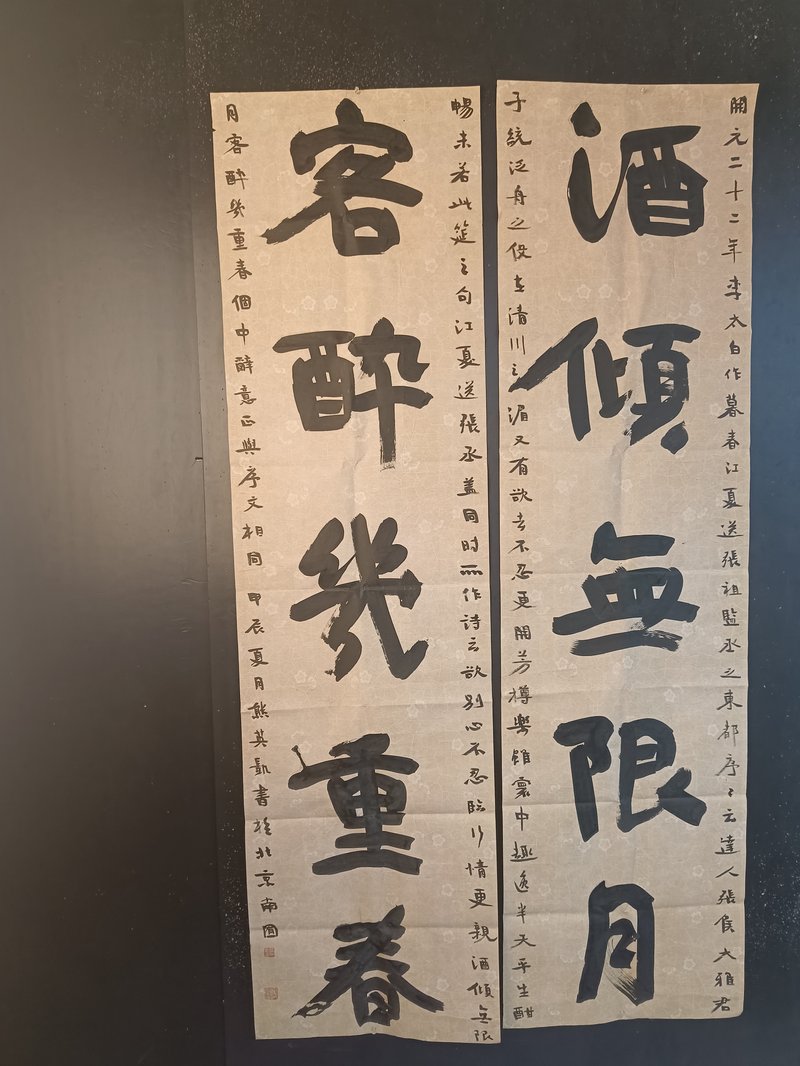 開元二十二年李太白作暮春江夏送張祖監丞之東都序々云達人張侯大雅君
酒傾無限月
子統泛舟之役在清川之湄又有欲去不忍更開芳樽樂雖寰中趣逸半天平生酣
暢未若此筵之句江夏送張丞蓋同時所作詩云欲別心不忍臨行情更親酒傾無限
客醉幾重春
月客醉幾重春個中辭意正與序文相同甲辰夏月熊英凱書於北京南園